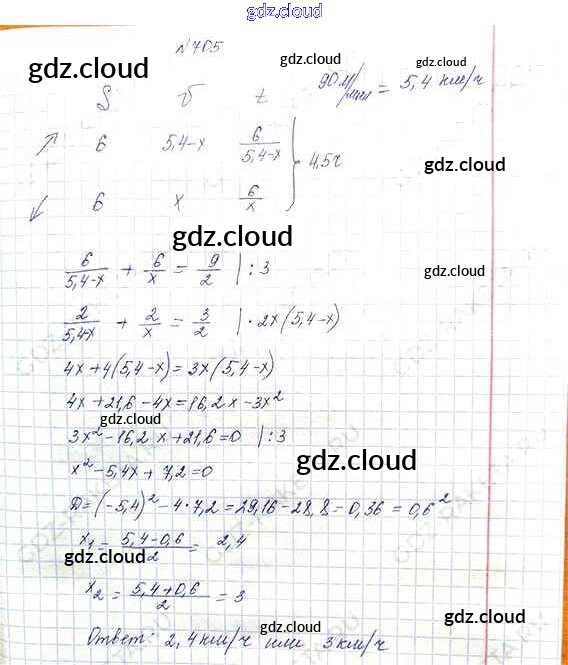 gdz.cloud
№705
gdz.cloud gdz.cloud
S v t 90 м/мин = 5,4 км/ч
↗ 6 5,4-x 6/(5,4-x) } 4,5ч
gdz.cloud
↙ 6 x 6/x
gdz.cloud
6/(5,4-x) + 6/x = 9/2 | :3
gdz.cloud
2/(5,4-x) + 2/x = 3/2 | ·2x(5,4-x)
4x+4(5,4-x)=3x(5,4-x)
4x+21,6-4x=16,2x-3x²
gdz.cloud
3x²-16,2x+21,6=0 | :3
gdz.cloud
x²-5,4x+7,2=0
Д=(-5,4)²-4·7,2=29,16-28,8=0,36=0,6²
x₁=(5,4-0,6)/2= 2,4
gdz.cloud
x₂=(5,4+0,6)/2=3
gdz.cloud
Ответ: 2,4 км/ч или 3 км/ч